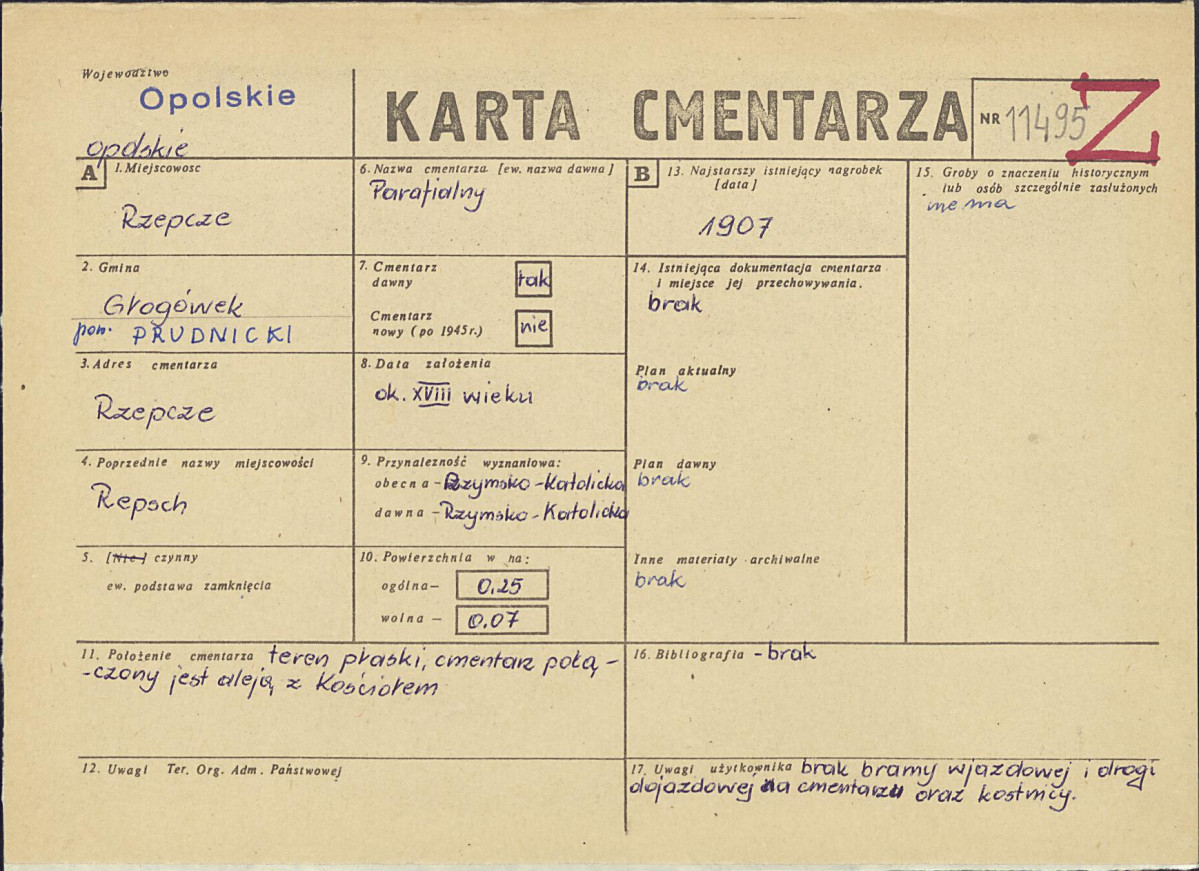 Województwo
Opolskie
opolskie
KARTA CMENTARZA
NR 11495
Z
A
1. Miejscowosc
Rzepcze
2. Gmina
Głogówek
pow. PRUDNICKI
3. Adres cmentarza
Rzepcze
4. Poprzednie nazwy miejscowości
Repsch
5. [Nie] czynny
ew. podstawa zamknięcia
6. Nazwa cmentarza [ew. nazwa dawna]
Parafialny
7. Cmentarz
dawny
tak
Cmentarz
nowy (po 1945 r.)
nie
8. Data założenia
ok. XVIII wieku
9. Przynależność wyznaniowa:
obecna - Rzymsko-Katolicka
dawna - Rzymsko-Katolicka
10. Powierzchnia w ha:
ogólna - 0.25
wolna - 0.07
11. Położenie cmentarza teren płaski, cmentarz połą-
-czony jest aleją z Kościołem
12. Uwagi Ter. Org. Adm. Państwowej
B
13. Najstarszy istniejący nagrobek
[data]
1907
14. Istniejąca dokumentacja cmentarza
i miejsce jej przechowywania.
brak
Plan aktualny
brak
Plan dawny
brak
Inne materiały archiwalne
brak
15. Groby o znaczeniu historycznym
lub osób szczególnie zasłużonych
nie ma
16. Bibliografia - brak
17. Uwagi użytkownika brak bramy wjazdowej i drogi
dojazdowej na cmentarzu oraz kostnicy.